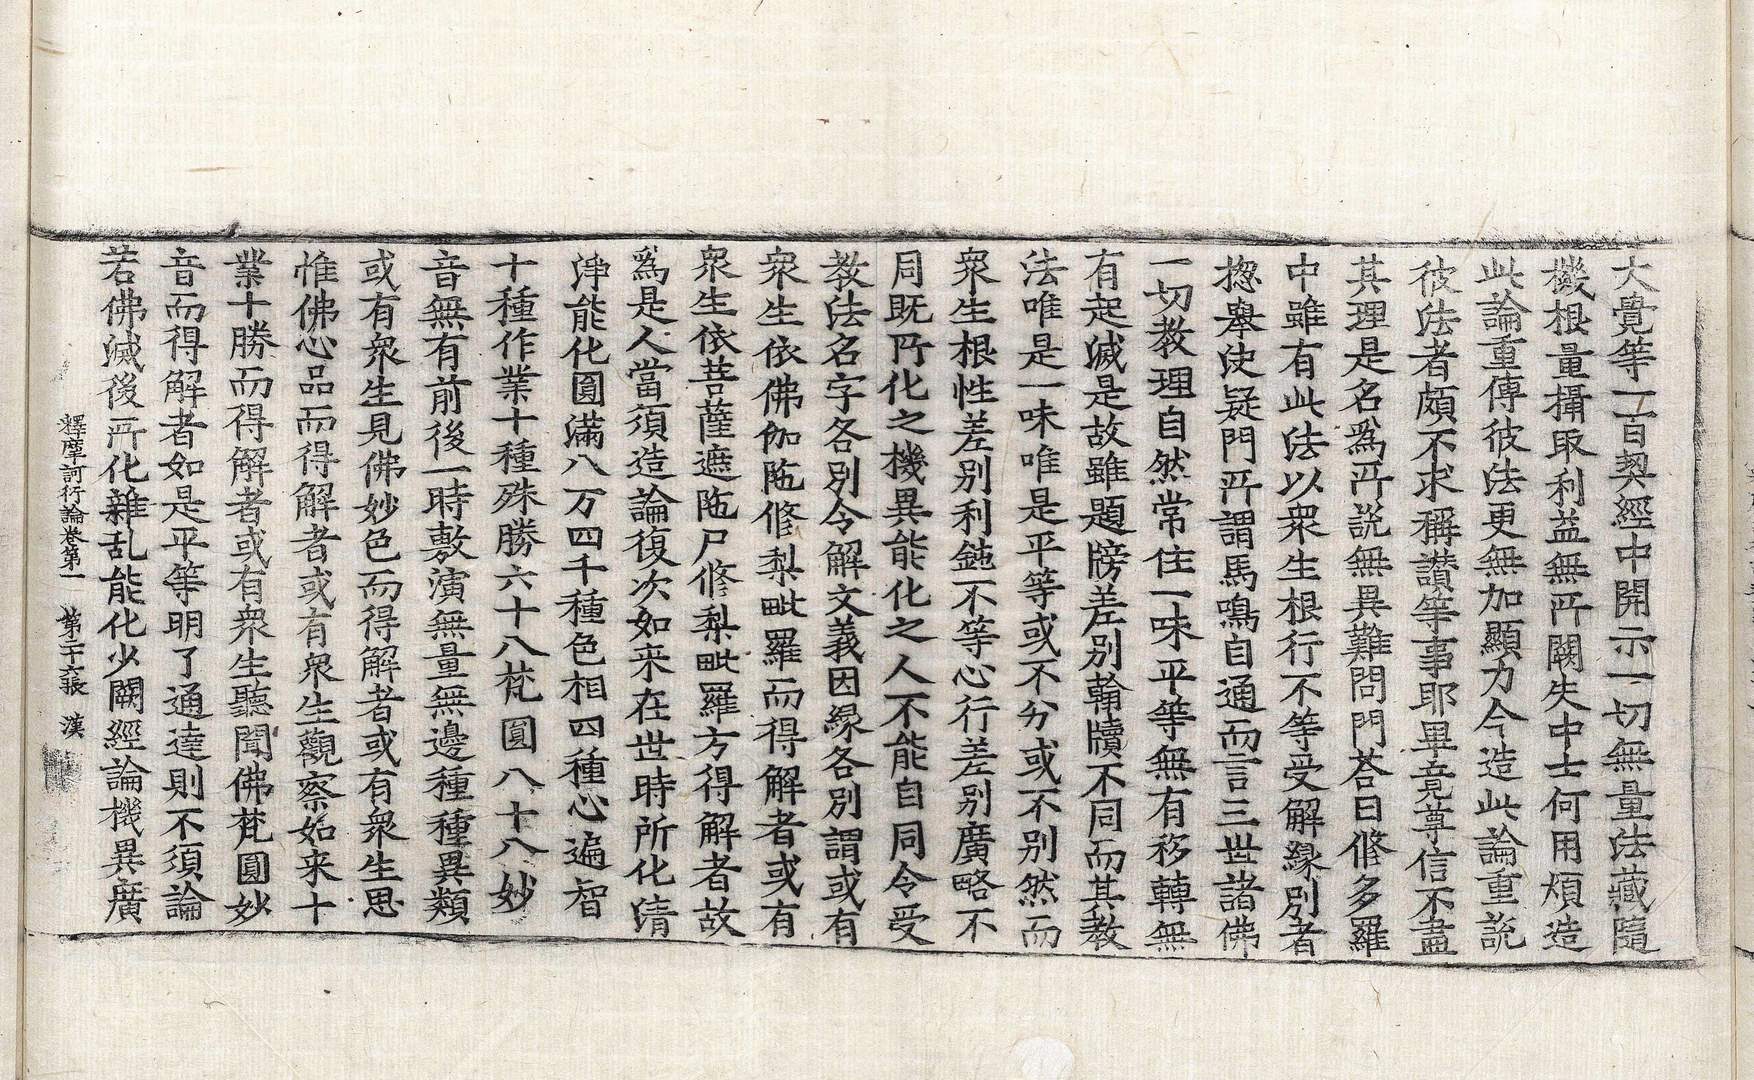 大覺等一百契經中開示一切無量法藏隨
機根量攝取利益無所闕失中士何用煩造
此論重傳彼法更無加顯力今造此論重說
彼法者頗不求稱讃等事耶畢竟尊信不盡
其理是名爲所說無異難問門荅曰修多羅
中雖有此法以衆生根行不等受解緣別者
揔舉决疑門所謂馬鳴自通而言三世諸佛
一切教理自然常住一味平等無有移轉無
有起滅是故雖題牓差別翰牘不同而其教
法唯是一味唯是平等或不分或不别然而
衆生根性差别利鈍不等心行差别廣略不
同既所化之機異能化之人不能自同令受
教法名字各別令解文義因緣各別謂或有
衆生依佛伽陁修梨毗羅而得解者或有
衆生依菩薩遮陁尸修梨毗羅方得解者故
爲是人當須造論復次如来在世時所化清
淨能化圓滿八万四千種色相四種心遍智
十種作業十種殊勝六十八梵圓八十八妙
音無有前後一時敷演無量無邊種種異類
或有衆生見佛妙色而得解者或有衆生思
惟佛心品而得解者或有衆生觀察如来十
業十勝而得解者或有衆生聽聞佛梵圓妙
音而得解者如是平等明了通達則不須論
若佛滅後所化雜乱能化少闕經論機異廣
釋摩訶衍論卷第一 第二十六張 漢